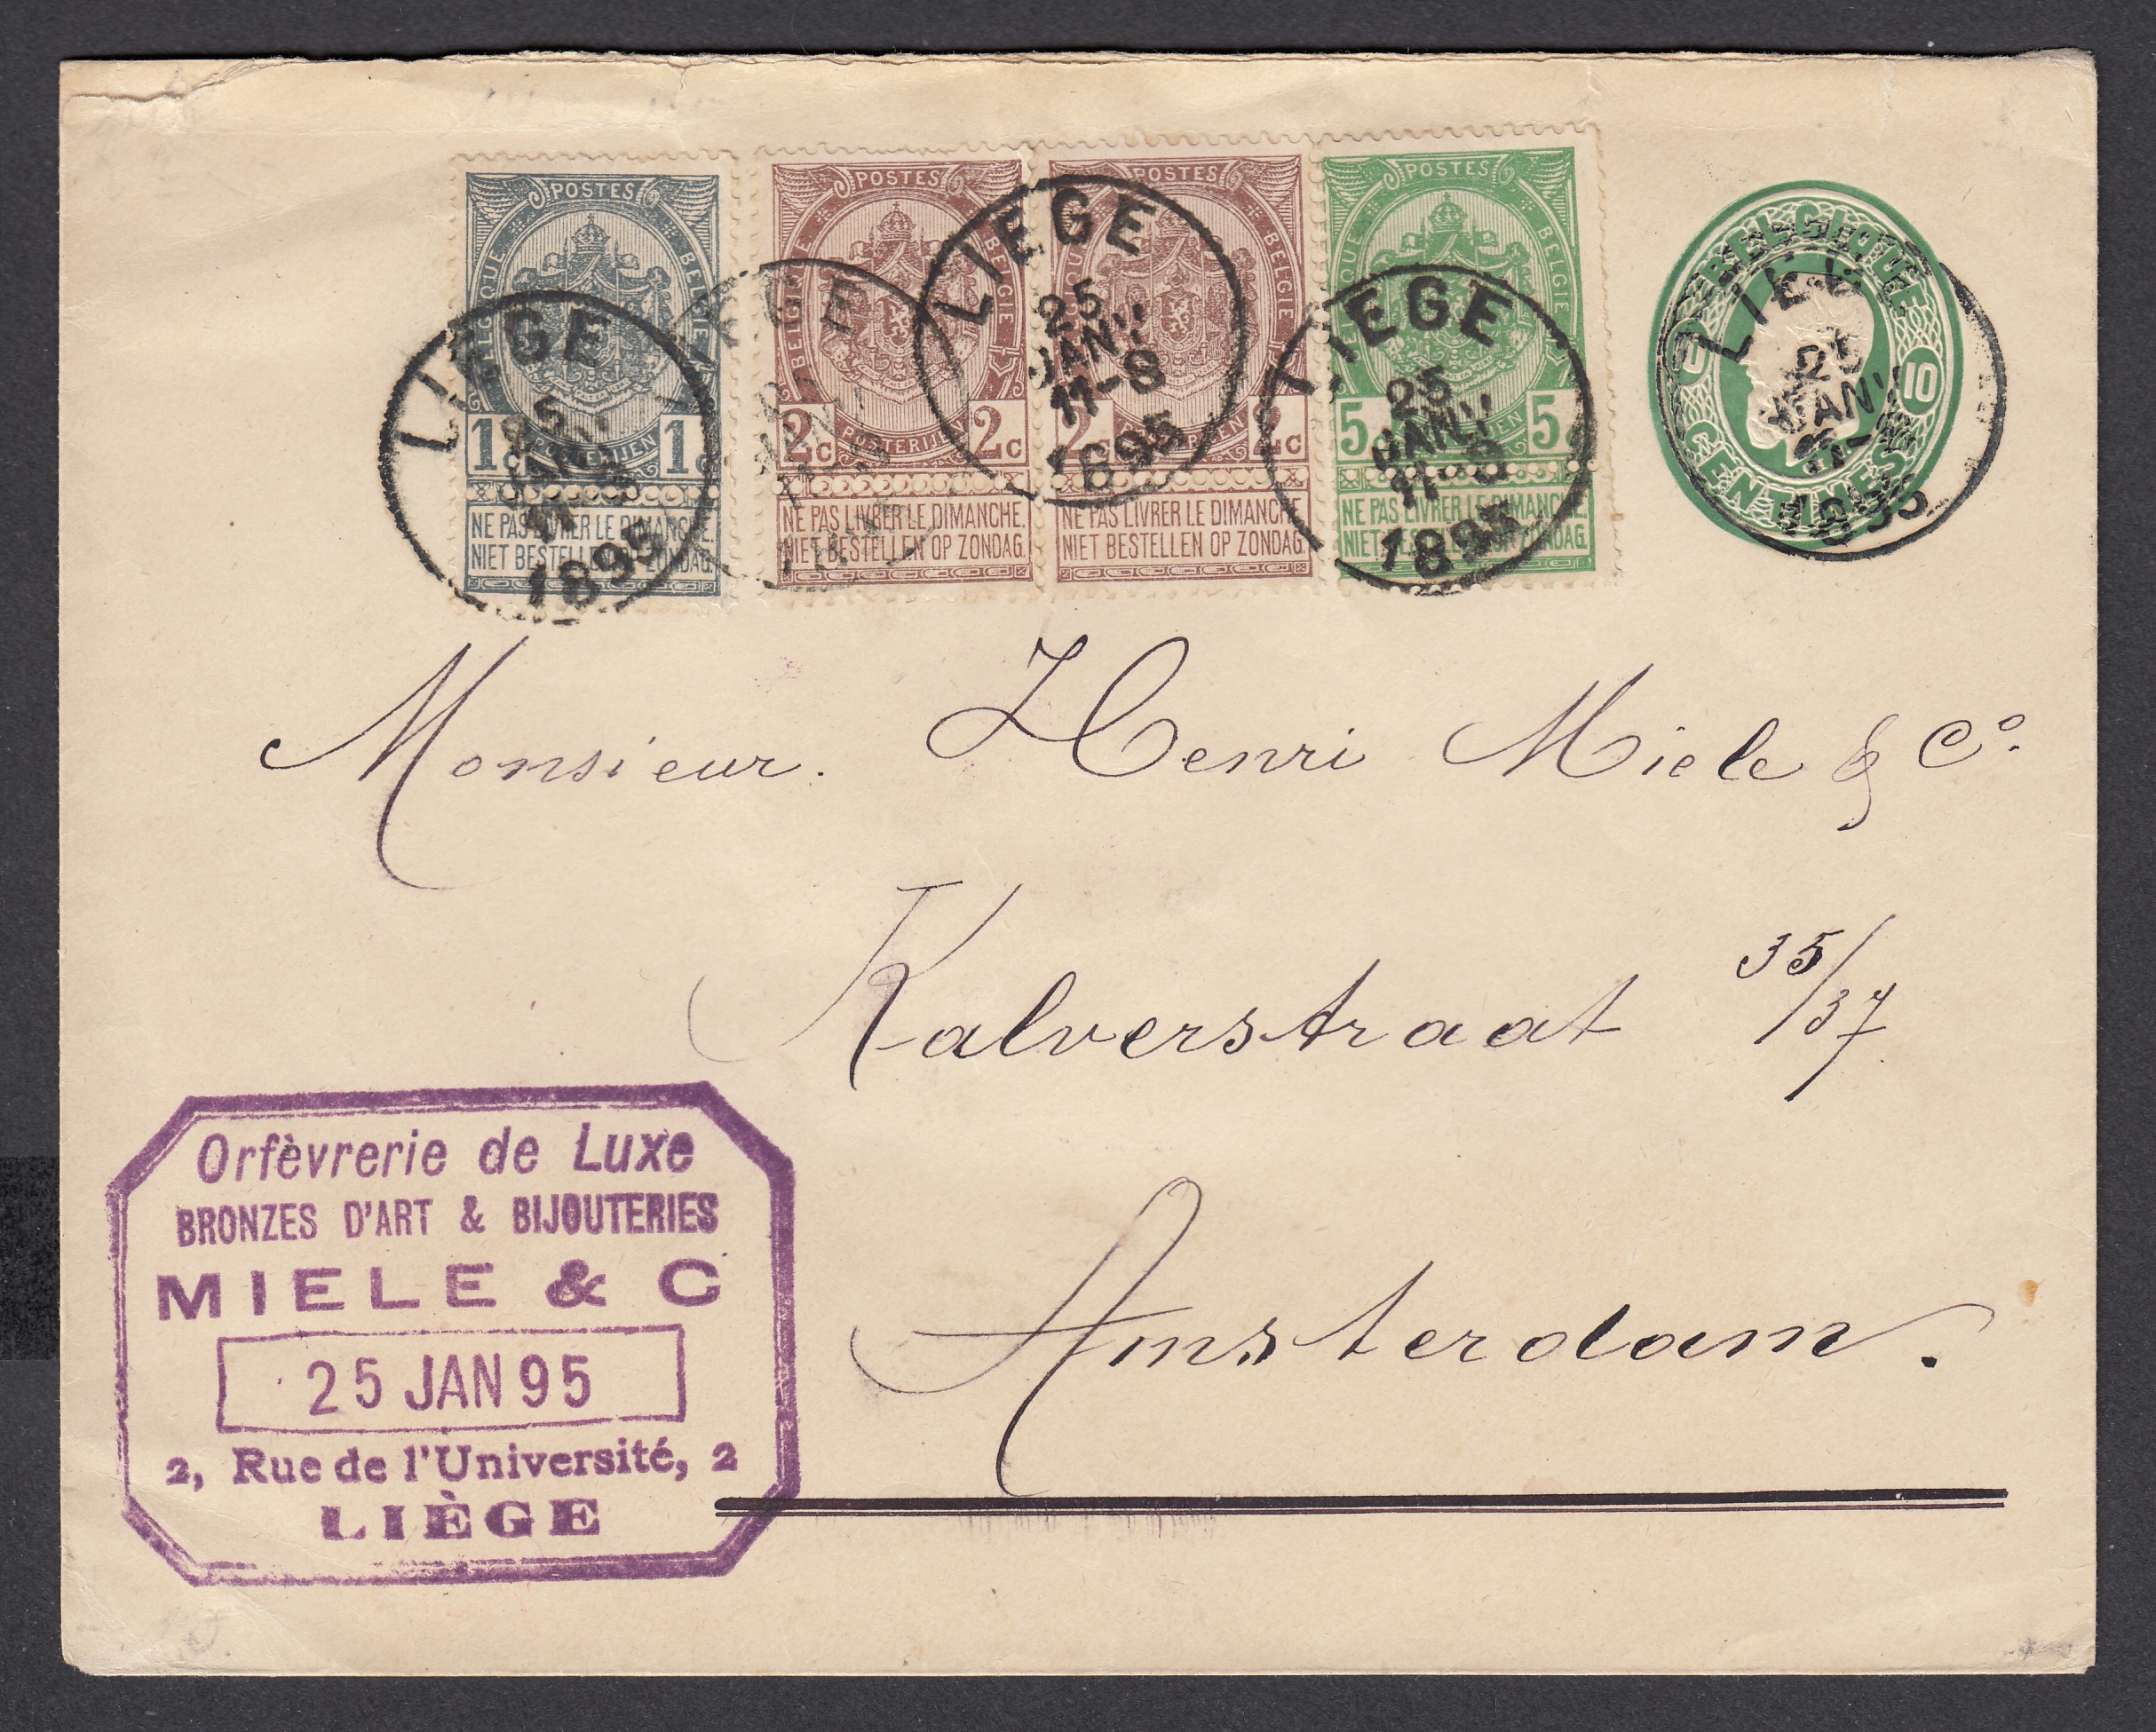 POSTES
BELGIQUE
BELGIE
1c
POSTERIJEN
1c
NE PAS LIVRER LE DIMANCHE.
NIET BESTELLEN OP ZONDAG.
POSTES
BELGIQUE
BELGIE
2c
POSTERIJEN
2c
NE PAS LIVRER LE DIMANCHE.
NIET BESTELLEN OP ZONDAG.
POSTES
BELGIQUE
BELGIE
2c
POSTERIJEN
2c
NE PAS LIVRER LE DIMANCHE.
NIET BESTELLEN OP ZONDAG.
POSTES
BELGIQUE
BELGIE
5c
POSTERIJEN
5c
NE PAS LIVRER LE DIMANCHE.
NIET BESTELLEN OP ZONDAG.
BELGIQUE
10
10
CENTIMES
LIEGE
25
JANV
1895
LIEGE
LIEGE
25
JANV
11-8
1895
LIEGE
25
JANV
11-8
1895
LIEGE
25
JANV
1895
Monsieur. Henri Miele & Co.
Kalverstraat 35/37
Amsterdam.
Orfèvrerie de Luxe
BRONZES D'ART & BIJOUTERIES
MIELE & C
25 JAN 95
2, Rue de l'Université, 2
LIÈGE